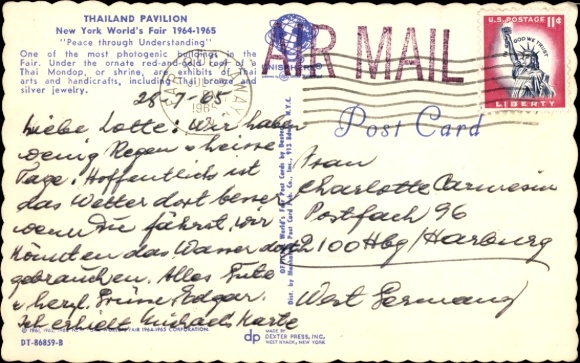 THAILAND PAVILION
New York World's Fair 1964-1965
"Peace through Understanding"
One of the most photogenic buildings in the
Fair. Under the ornate red-and-gold roof of a
Thai Mondop, or shrine, are exhibits of Thai
arts and handicrafts, including Thai bronze and
silver jewelry.
AIR MAIL
U.S. POSTAGE 11¢
IN GOD WE TRUST
LIBERTY
1965
Post Card
28-7-65
Liebe Lotte: Wir haben
wenig Regen & heisse
Tage. Hoffentlich ist
das Wetter dort besser
wenn Du fährst, wir
könnten das Wasser doch
gebrauchen. Alles Gute
& herzl. Grüsse Edgar.
Ich erhielt Michaels Karte
Frau
Charlotte Carmesin
Postfach 96
2100 Hbg/Harburg
West Germany
World's Fair Post Cards by Dexter
Dist. by Manhattan Post Card Pub. Co., Inc., 913 N.Y.C.
WORLD'S FAIR 1964-1965 CORPORATION
DT-86859-B
dp
MADE BY
DEXTER PRESS, INC.
WEST NYACK, NEW YORK